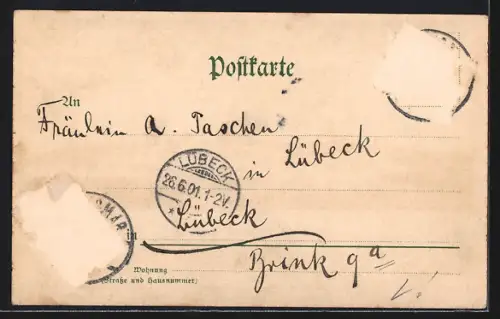 Postkarte
An
Fräulein A. Taschen
in Lübeck
LÜBECK
26.6.01.1-2V.
*
Lübeck
SMAR
in
Brink 9a
Wohnung
(Straße und Hausnummer)